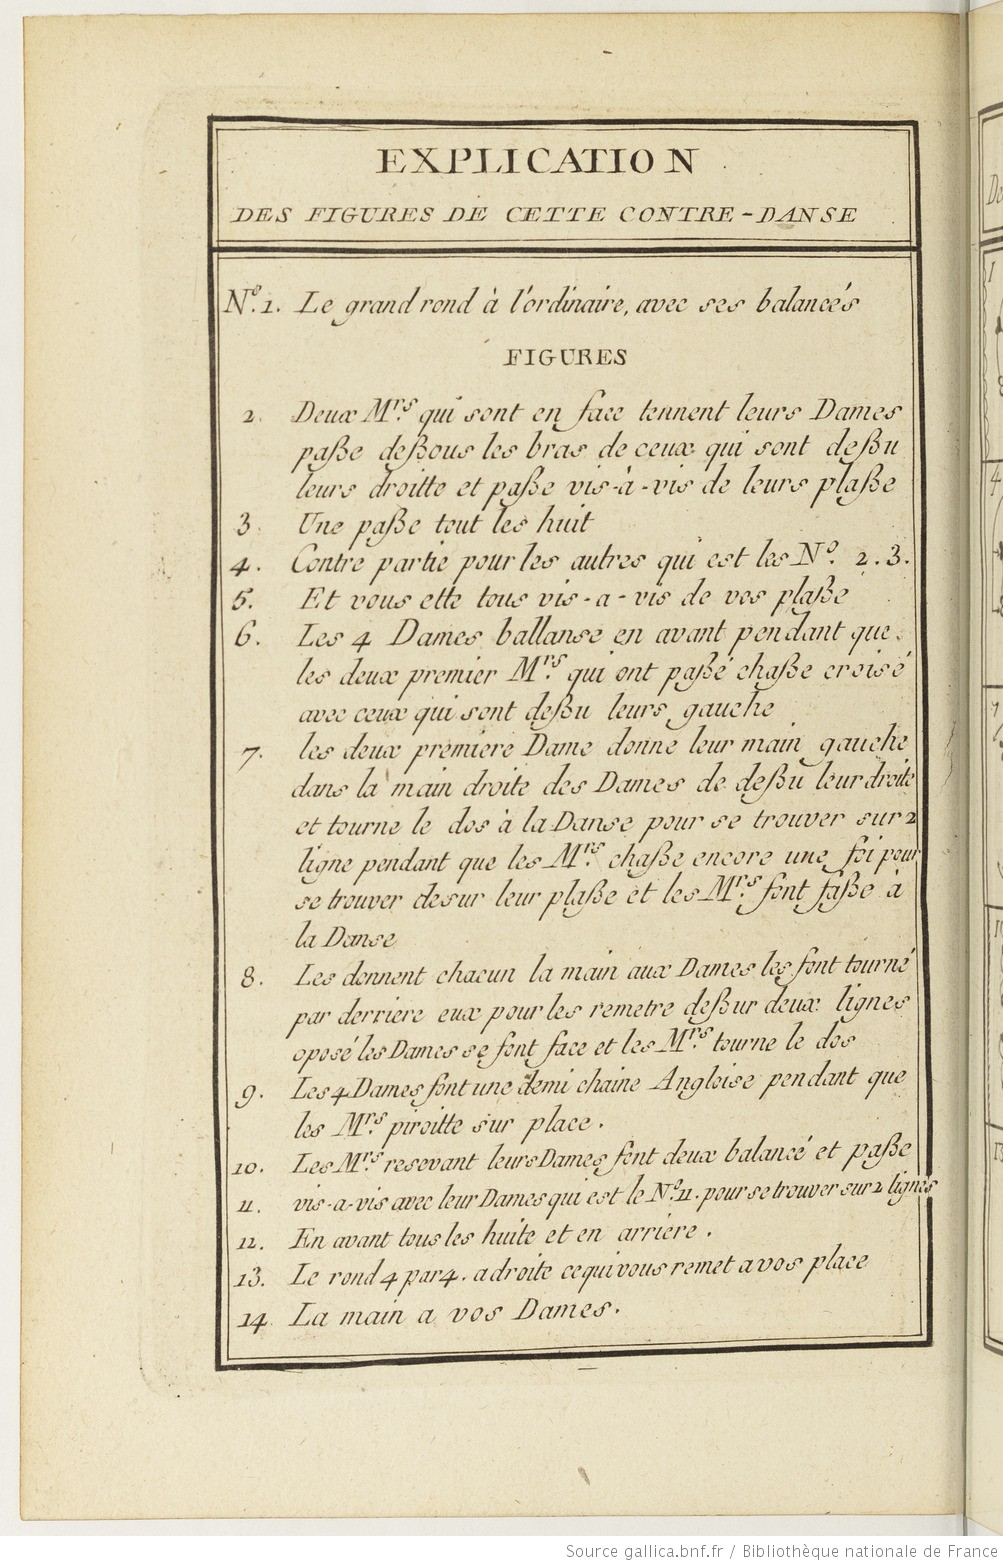 EXPLICATION
DES FIGURES DE CETTE CONTRE-DANSE
N.º 1. Le grand rond à l'ordinaire, avec ses balancés
FIGURES
2. Deux M.rs qui sont en face tennent leurs Dames
paße deßous les bras de ceux qui sont deßu
leurs droitte et paße vis-à-vis de leurs plaße
3. Une paße tout les huit
4. Contre partie pour les autres qui est les N.º 2.3.
5. Et vous ette tous vis-a-vis de vos plaße
6. Les 4 Dames ballanse en avant pendant que
les deux premier M.rs qui ont paßé chaße croisé
avec ceux qui sont deßu leurs gauche
7. les deux premiere Dame donne leur main gauche
dans la main droite des Dames de deßu leur droite
et tourne le dos à la Danse pour se trouver sur 2
ligne pendant que les M.rs chaße encore une foi pour
se trouver desur leur plaße et les M.rs font faße à
la Danse
8. Les donnent chacun la main aux Dames les font tourné
par derriere eux pour les remetre deßur deux lignes
oposé les Dames se font face et les M.rs tourne le dos
9. Les 4 Dames font une demi chaine Angloise pendant que
les M.rs piroitte sur place.
10. Les M.rs resevant leurs Dames font deux balancé et paße
11. vis-a-vis avec leur Dames qui est le N.º 11. pour se trouver sur 2 lignes
12. En avant tous les huite et en arriere.
13. Le rond 4 par 4. a droite ce qui vous remet a vos place
14. La main a vos Dames.
Source gallica.bnf.fr / Bibliothèque nationale de France